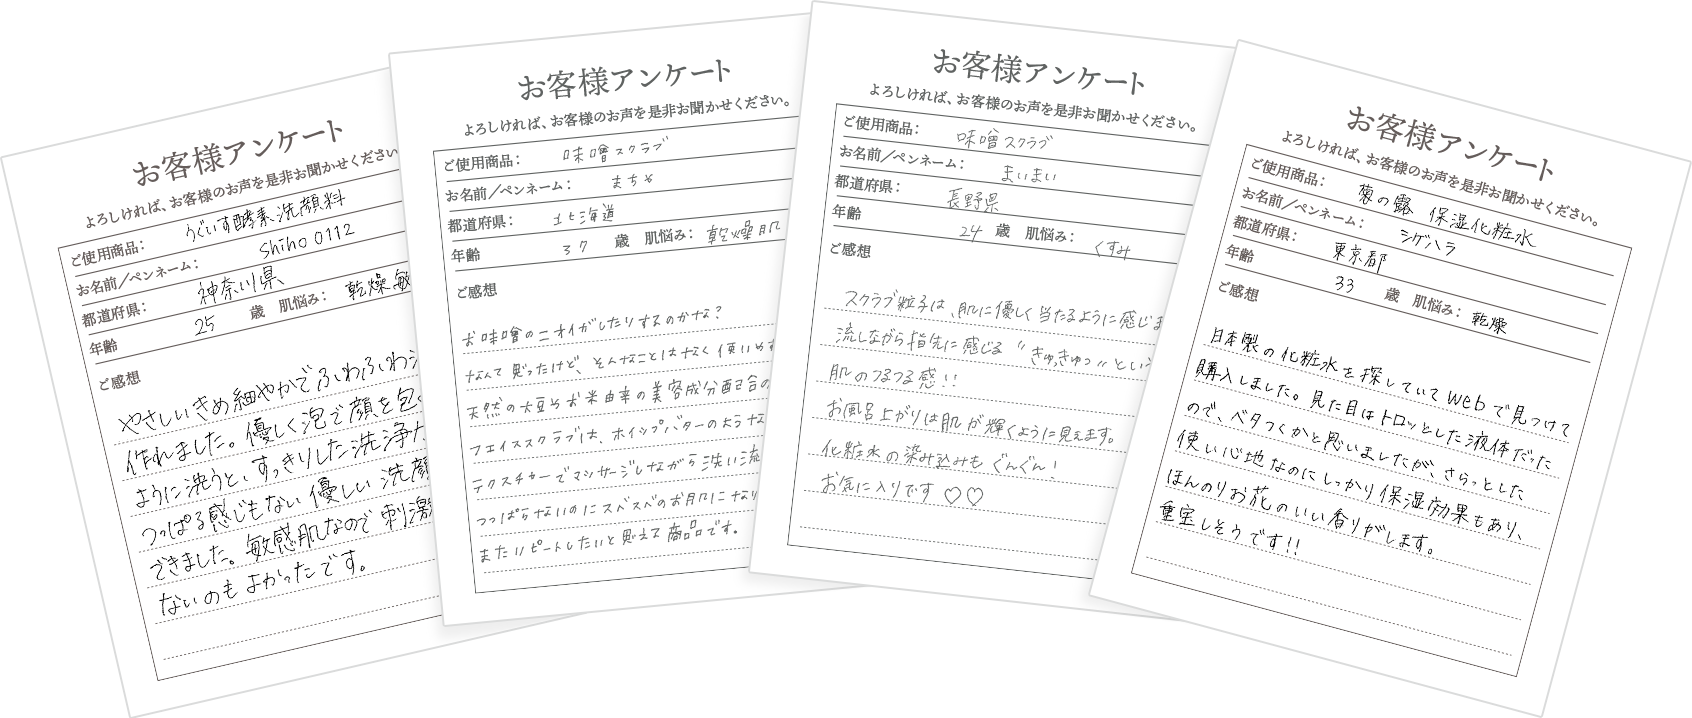 お客様アンケート
よろしければ、お客様のお声を是非お聞かせください
ご使用商品: うぐいす酵素洗顔料
お名前/ペンネーム: Shiho 0112
都道府県: 神奈川県
年齢 25 歳 肌悩み: 乾燥、敏
ご感想
やさしいきめ細やかでふわふわ
作れました。優しく泡で顔を包
ように洗うと、すっきりした洗浄
つっぱる感じもない優しい洗顔
できました。敏感肌なので刺激
ないのもよかったです。
お客様アンケート
よろしければ、お客様のお声を是非お聞かせください。
ご使用商品: 味噌スクラブ
お名前/ペンネーム: まちゃ
都道府県: 北海道
年齢 37 歳 肌悩み: 乾燥肌
ご感想
お味噌のニオイがしたりするのかな?
なんて思ったけど、そんなことはなく使いやす
天然の大豆やお米由来の美容成分配合の
フェイススクラブは、ホイップバターのような
テクスチャーでマッサージしながら洗い流
つっぱらないのにスベスベのお肌になり
またリピートしたいと思えて商品です。
お客様アンケート
よろしければ、お客様のお声を是非お聞かせください。
ご使用商品: 味噌スクラブ
お名前/ペンネーム: まいまい
都道府県: 長野県
年齢 24 歳 肌悩み: くすみ
ご感想
スクラブ粒子は、肌に優しく当たるように感じま
流しながら指先に感じる “きゅきゅっ”とい
肌のつるつる感!!
お風呂上がりは肌が輝くように見えます。
化粧水の染み込みもぐんぐん!
お気に入りです♡♡
お客様アンケート
よろしければ、お客様のお声を是非お聞かせください。
ご使用商品: 菊の露 保湿化粧水
お名前/ペンネーム: シゲハラ
都道府県: 東京都
年齢 33 歳 肌悩み: 乾燥
ご感想
日本製の化粧水を探していてwebで見つけて
購入しました。見た目はトロッとした液体だった
ので、ベタつくかと思いましたが、さらっとした
使い心地なのにしっかり保湿効果もあり、
ほんのりお花のいい香りがします。
重宝しそうです!!